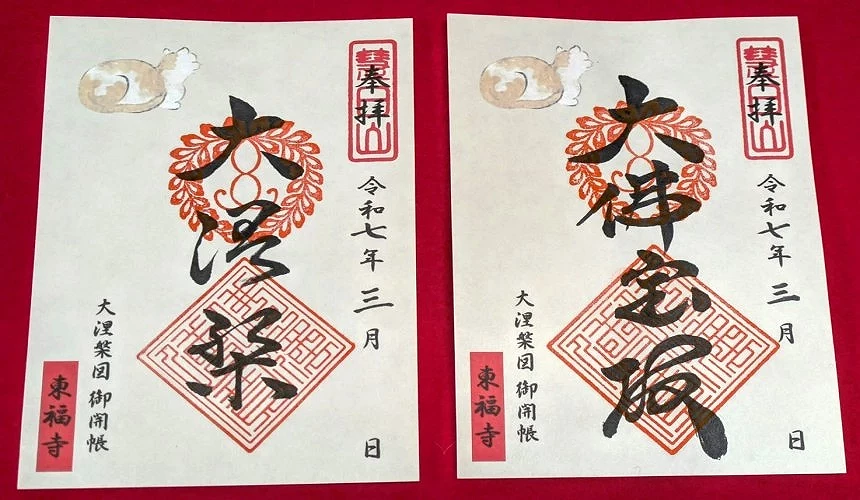 奉拝
令和七年三月 日
大涅槃
大涅槃図御開帳
東福寺
奉拝
令和七年三月 日
大佛宝殿
大涅槃図御開帳
東福寺